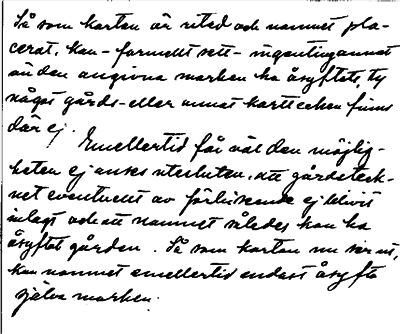 Så som kartan är ritad och namnet pla-
cerat, kan - formellt sett - ingenting annat
än den angivna marken ha åsyftats, ty
något gårds- eller annat karttecken finns
där ej.
Emellertid får väl den möjlig-
heten ej anses utesluten, att gårdsteck-
net eventuellt av förbiseende ej blivit
inlagt och att namnet således kan ha
åsyftat gården. Så som kartan nu ser ut,
kan namnet emellertid endast åsyfta
själva marken.